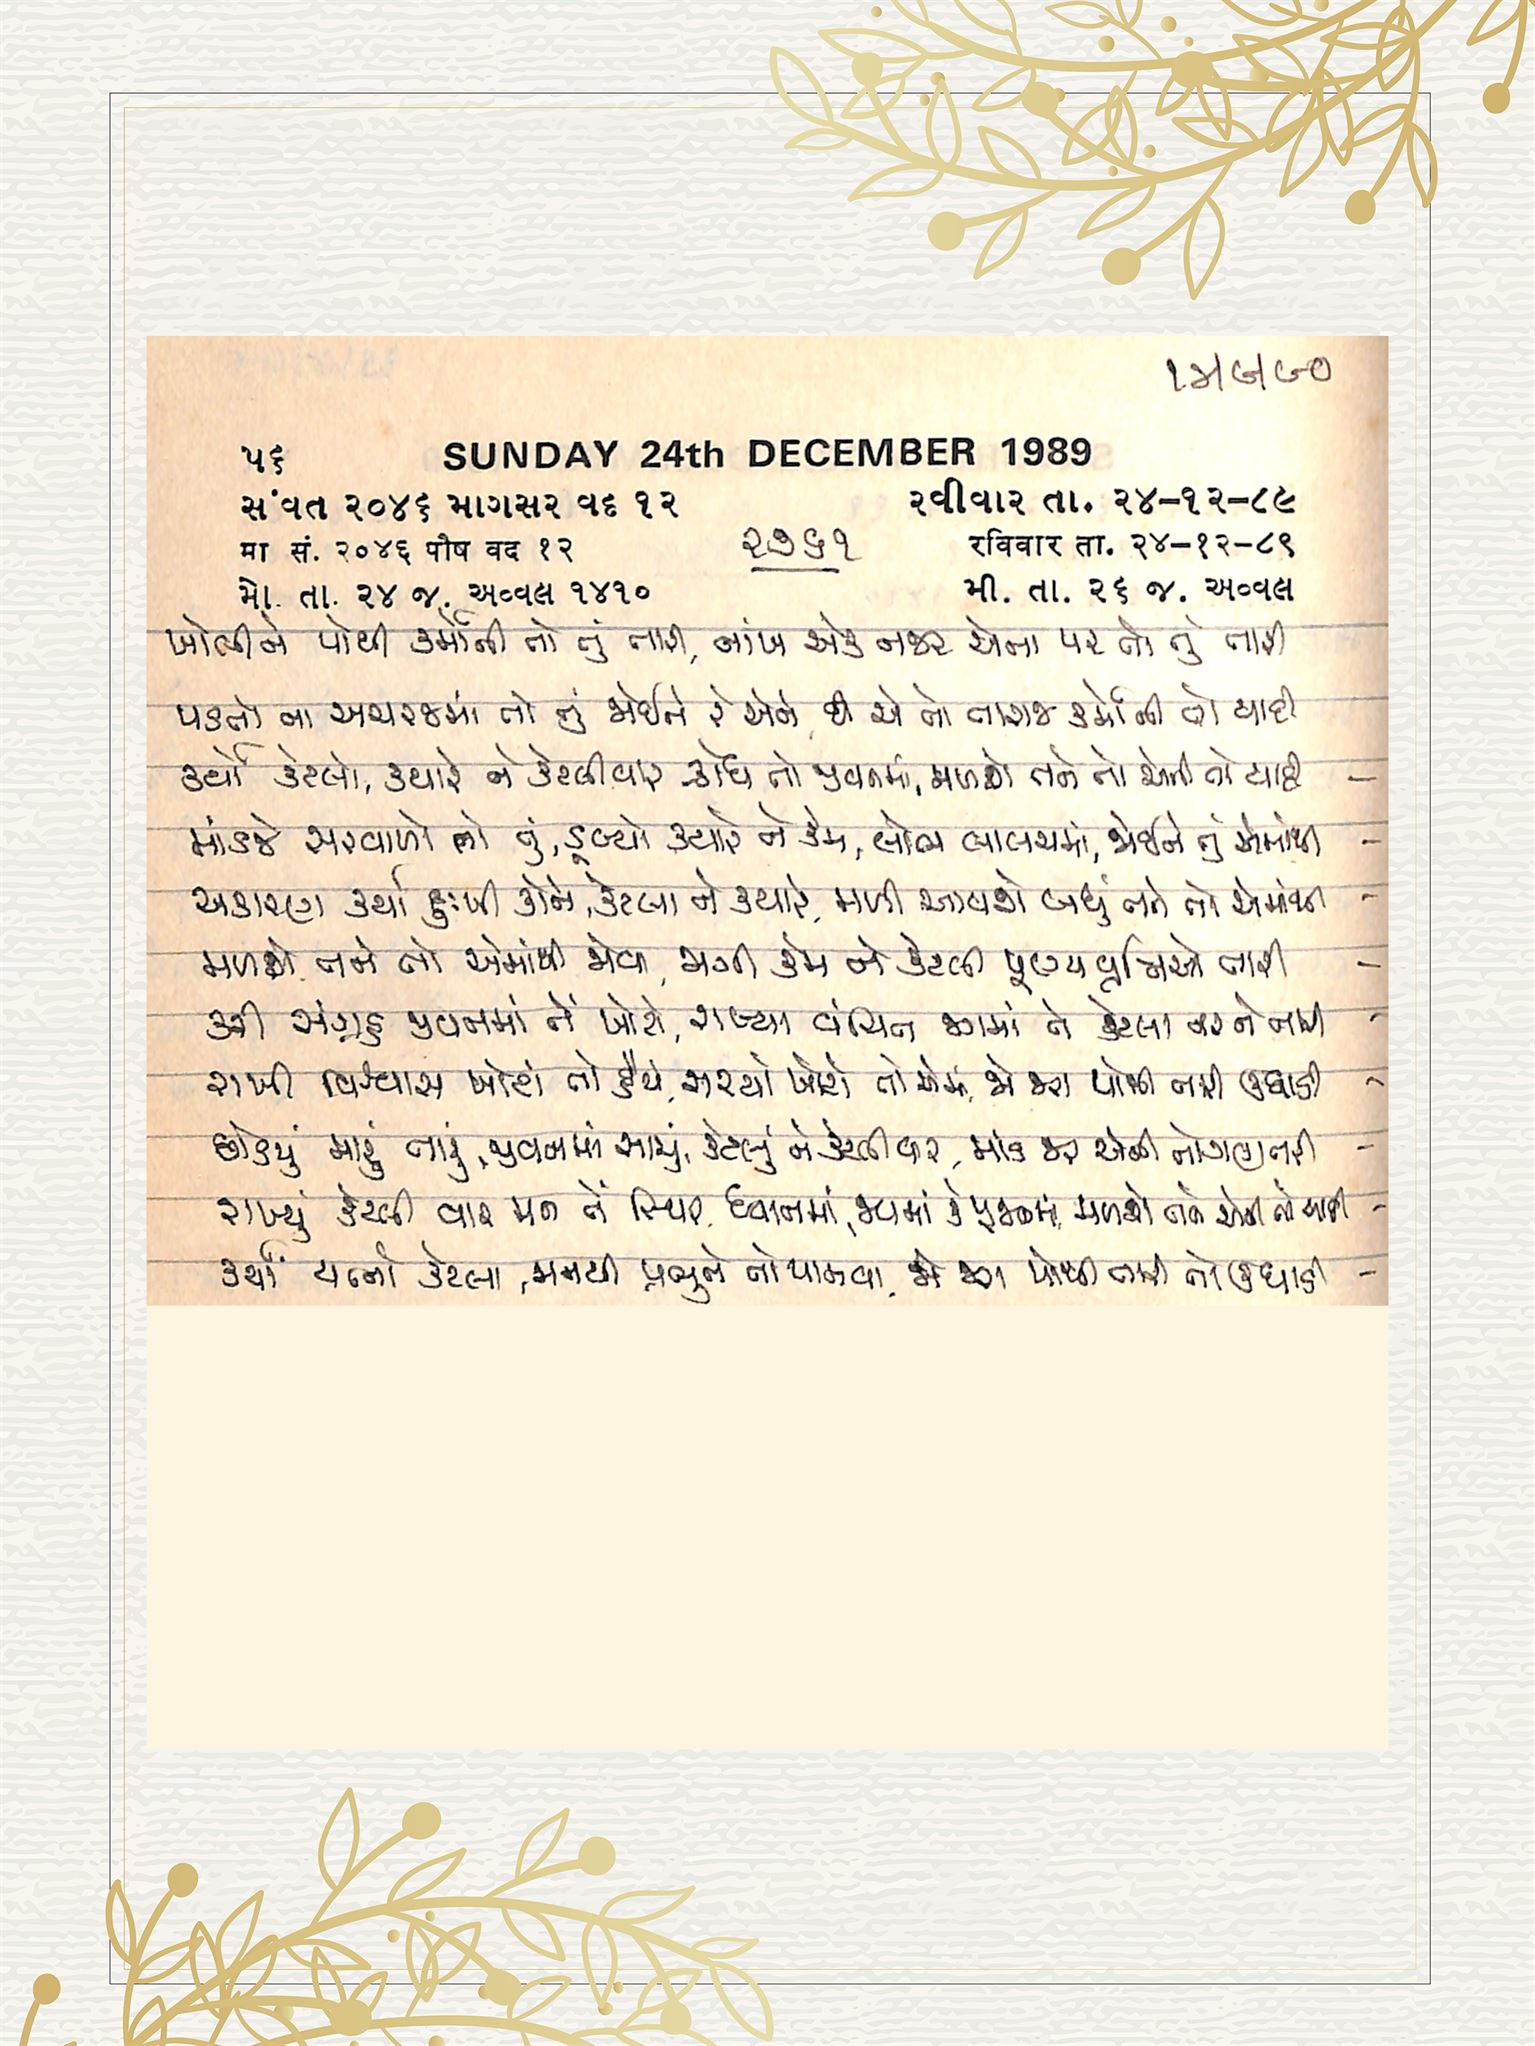 ૧૫|૯|૯૦
૫૬ SUNDAY 24th DECEMBER 1989
સંવત ૨૦૪૬ માગસર વદ ૧૨ રવીવાર તા. ૨૪-૧૨-૮૯
मा सं. २०४६ पौष वद १२ ૨૭૬૧ रविवार ता. २४-१२-८९
મો. તા. ૨૪ જ. અવ્વલ ૧૪૧૦ મી. તા. ૨૬ જ. અવ્વલ
ખોલીને પોથી કર્મોની તો તું તારી, નાંખ એક નજર એના પર તો તું તારી
પડતો ના અચરજમાં તો તું જોઈને રે એને, છે એ તો તારાજ કર્મોની તો યાદી
કર્યો કેટલો, ક્યારે ને કેટલીવાર ક્રોધ તો જીવનમાં, મળશે તને તો એની તો યાદી -
માંડજે સરવાળો તો તું, ડૂબ્યો ક્યારે ને કેમ, લોભ લાલચમાં, જોઈને તું એમાંથી -
અકારણ કર્યા દુઃખી કોને, કેટલા ને ક્યારે, મળી આવશે બધું તને તો એમાંથી -
મળશે તને તો એમાંથી જોવા, જાગી કેમ ને કેટલી પૂણ્ય વૃત્તિઓ તારી -
કરી સંગ્રહ જીવનમાં તેં ખોટો, રાખ્યા વંચિત એમાં ને કેટલા નર ને નારી -
રાખી વિશ્વાસ ખોટો તો હૈયે, સરક્યો ખોટો તો એમાં, જો જરા પોથી તારી ઉઘાડી -
છોડયું મારું તારું, જીવનમાં સાચું, કેટલું ને કેટલીવાર, માંડ જરા એની તો ગણતરી -
રાખ્યું કેટલી વાર મન તેં સ્થિર, ધ્યાનમાં, જપમાં કે પૂજનમાં, મળશે તને એની તો યાદી -
કર્યાં યત્નો કેટલા, મનથી પ્રભુને તો પામવા, જો જરા પોથી તારી તો ઉઘાડી -